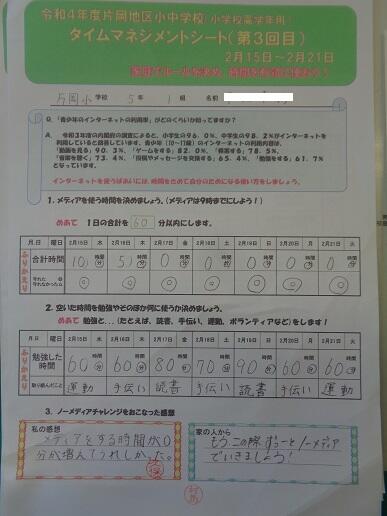 令和4年度片岡地区小中学校(小学校高学年用)
タイムマネジメントシート(第3回目)
2月15日～2月21日
片岡小 学校 5年 1組 名前
Q.「青少年のインターネットの利用率」がどのくらいか知ってますか?
A. 令和3年度の内閣府の調査によると、小学生の96.0%、中学生の98.2%がインターネットを
利用していると回答しています。青少年(10～17歳)のインターネットの利用内容は、
「動画を見る」90.3%、「ゲームをする」82.0%、「検索する」78.5%、
「音楽を聴く」73.4%、「投稿やメッセージを交換する」65.4%、「勉強する」61.7%
となっています。
インターネットを使うばあいには、時間を決めて自分のためになる使い方をしましょう。
1.メディアを使う時間を決めましょう。(メディアは9時までにしよう!)
めあて 1日の合計を 60 分以内にします。
月.日 曜日 2月15日 水 2月16日 木 2月17日 金 2月18日 土 2月19日 日 2月20日 月 2月21日 火
ふりかえり
合計時間 10 時間 分 5 時間 分 0 時間 分 0 時間 分 0 時間 分 0 時間 分 0 時間 分
守れた ◎
守れなかった △
◎ ◎ ◎ ◎ ◎ ◎ ◎
2.空いた時間を勉強やそのほか何に使うか決めましょう。
めあて 勉強と...(たとえば、読書、手伝い、運動、ボランティアなど)をします!
月.日 曜日 2月15日 水 2月16日 木 2月17日 金 2月18日 土 2月19日 日 2月20日 月 2月21日 火
ふりかえり
勉強した時間 60 時間 分 60 時間 分 80 時間 分 70 時間 分 90 時間 分 60 時間 分 60 時間 分
取り組んだこと 運動 手伝い 読書 手伝い 読書 手伝い 運動
3.ノーメディアチャレンジをおこなった感想
私の感想
メディアをする時間が0
分が増えてうれしかった。
家の人から
もうこの際ずーっとノーメディア
でいきましょう!